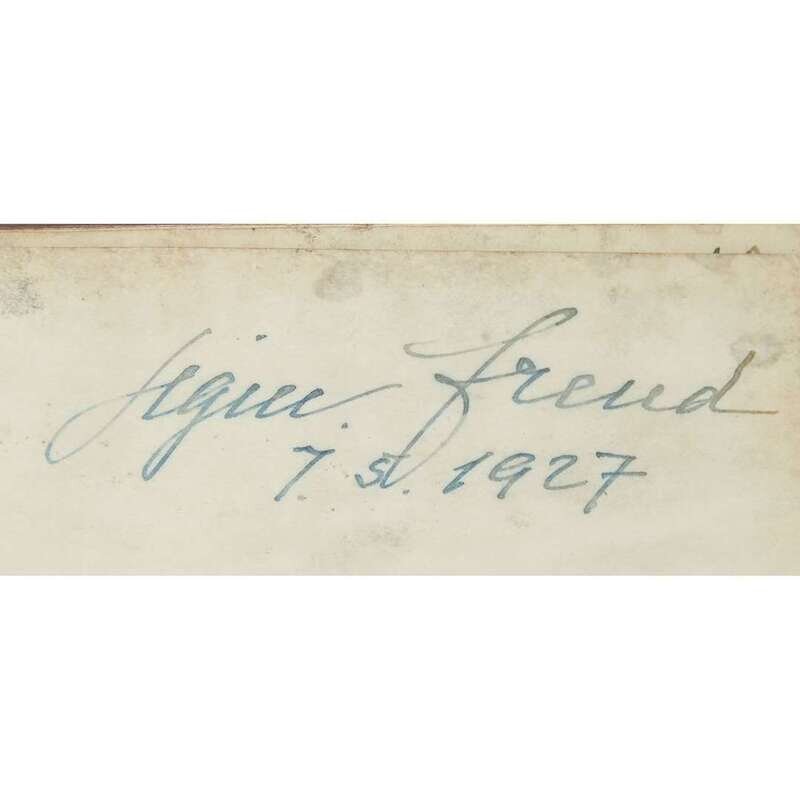 Sigm. Freud
7. st. 1927